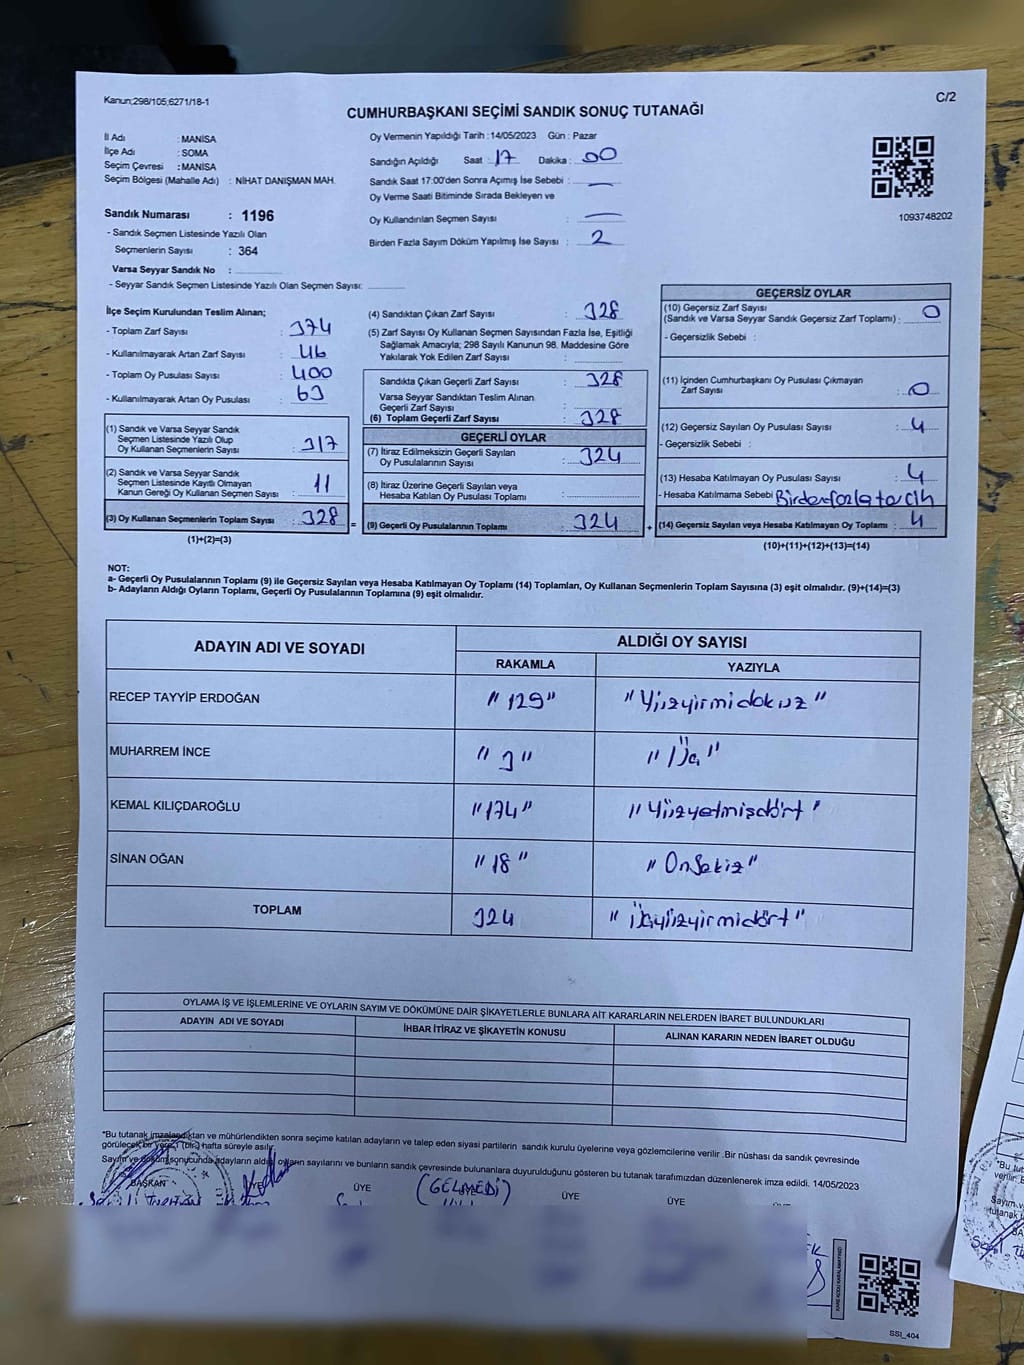 Kanun;298/105;6271/18-1
C/2
CUMHURBAŞKANI SEÇİMİ SANDIK SONUÇ TUTANAĞI
İl Adı : MANİSA
İlçe Adı : SOMA
Seçim Çevresi : MANİSA
Seçim Bölgesi (Mahalle Adı) : NİHAT DANIŞMAN MAH.
Sandık Numarası : 1196
- Sandık Seçmen Listesinde Yazılı Olan
Seçmenlerin Sayısı : 364
Varsa Seyyar Sandık No :
- Seyyar Sandık Seçmen Listesinde Yazılı Olan Seçmen Sayısı:
Oy Vermenin Yapıldığı Tarih : 14/05/2023 Gün : Pazar
Sandığın Açıldığı Saat : 17 Dakika : 00
Sandık Saat 17:00'den Sonra Açımış İse Sebebi : —
Oy Verme Saati Bitiminde Sırada Bekleyen ve
Oy Kullandırılan Seçmen Sayısı : —
Birden Fazla Sayım Döküm Yapılmış İse Sayısı : 2
1093748202
İlçe Seçim Kurulundan Teslim Alınan;
- Toplam Zarf Sayısı : 374
- Kullanılmayarak Artan Zarf Sayısı : 46
- Toplam Oy Pusulası Sayısı : 400
- Kullanılmayarak Artan Oy Pusulası : 63
(1) Sandık ve Varsa Seyyar Sandık
Seçmen Listesinde Yazılı Olup
Oy Kullanan Seçmenlerin Sayısı : 317
(2) Sandık ve Varsa Seyyar Sandık
Seçmen Listesinde Kayıtlı Olmayan
Kanun Gereği Oy Kullanan Seçmen Sayısı : 11
(3) Oy Kullanan Seçmenlerin Toplam Sayısı : 328 =
(1)+(2)=(3)
(4) Sandıktan Çıkan Zarf Sayısı : 328
(5) Zarf Sayısı Oy Kullanan Seçmen Sayısından Fazla İse, Eşitliği
Sağlamak Amacıyla; 298 Sayılı Kanunun 98. Maddesine Göre
Yakılarak Yok Edilen Zarf Sayısı :
Sandıkta Çıkan Geçerli Zarf Sayısı : 328
Varsa Seyyar Sandıktan Teslim Alınan
Geçerli Zarf Sayısı :
(6) Toplam Geçerli Zarf Sayısı : 328
GEÇERLİ OYLAR
(7) İtiraz Edilmeksizin Geçerli Sayılan
Oy Pusulalarının Sayısı : 324
(8) İtiraz Üzerine Geçerli Sayılan veya
Hesaba Katılan Oy Pusulası Toplamı :
(9) Geçerli Oy Pusulalarının Toplamı : 324 +
GEÇERSİZ OYLAR
(10) Geçersiz Zarf Sayısı
(Sandık ve Varsa Seyyar Sandık Geçersiz Zarf Toplamı) : 0
- Geçersizlik Sebebi :
(11) İçinden Cumhurbaşkanı Oy Pusulası Çıkmayan
Zarf Sayısı : 0
(12) Geçersiz Sayılan Oy Pusulası Sayısı : 4
- Geçersizlik Sebebi :
(13) Hesaba Katılmayan Oy Pusulası Sayısı : 4
- Hesaba Katılmama Sebebi : Birden fazla tercih
(14) Geçersiz Sayılan veya Hesaba Katılmayan Oy Toplamı : 4
(10)+(11)+(12)+(13)=(14)
NOT:
a- Geçerli Oy Pusulalarının Toplamı (9) ile Geçersiz Sayılan veya Hesaba Katılmayan Oy Toplamı (14) Toplamları, Oy Kullanan Seçmenlerin Toplam Sayısına (3) eşit olmalıdır. (9)+(14)=(3)
b- Adayların Aldığı Oyların Toplamı, Geçerli Oy Pusulalarının Toplamına (9) eşit olmalıdır.
ADAYIN ADI VE SOYADI ALDIĞI OY SAYISI
RAKAMLA YAZIYLA
RECEP TAYYİP ERDOĞAN "129" "Yüzyirmidokuz"
MUHARREM İNCE "3" "Üç"
KEMAL KILIÇDAROĞLU "174" "Yüzyetmişdört"
SİNAN OĞAN "18" "Onsekiz"
TOPLAM 324 "Üçyüzyirmidört"
OYLAMA İŞ VE İŞLEMLERİNE VE OYLARIN SAYIM VE DÖKÜMÜNE DAİR ŞİKAYETLERLE BUNLARA AİT KARARLARIN NELERDEN İBARET BULUNDUKLARI
ADAYIN ADI VE SOYADI İHBAR İTİRAZ VE ŞİKAYETİN KONUSU ALINAN KARARIN NEDEN İBARET OLDUĞU
"Bu tutanak imzalandıktan ve mühürlendikten sonra seçime katılan adayların ve talep eden siyasi partilerin sandık kurulu üyelerine veya gözlemcilerine verilir .Bir nüshası da sandık çevresinde
görülecek bir yere 1 (bir) hafta süreyle asılır.
Sayım ve döküm sonucunda adayların aldığı oyların sayılarını ve bunların sandık çevresinde bulunanlara duyurulduğunu gösteren bu tutanak tarafımızdan düzenlenerek imza edildi. 14/05/2023
BAŞKAN ÜYE ÜYE (GELMEDİ) ÜYE ÜYE
SSI_404